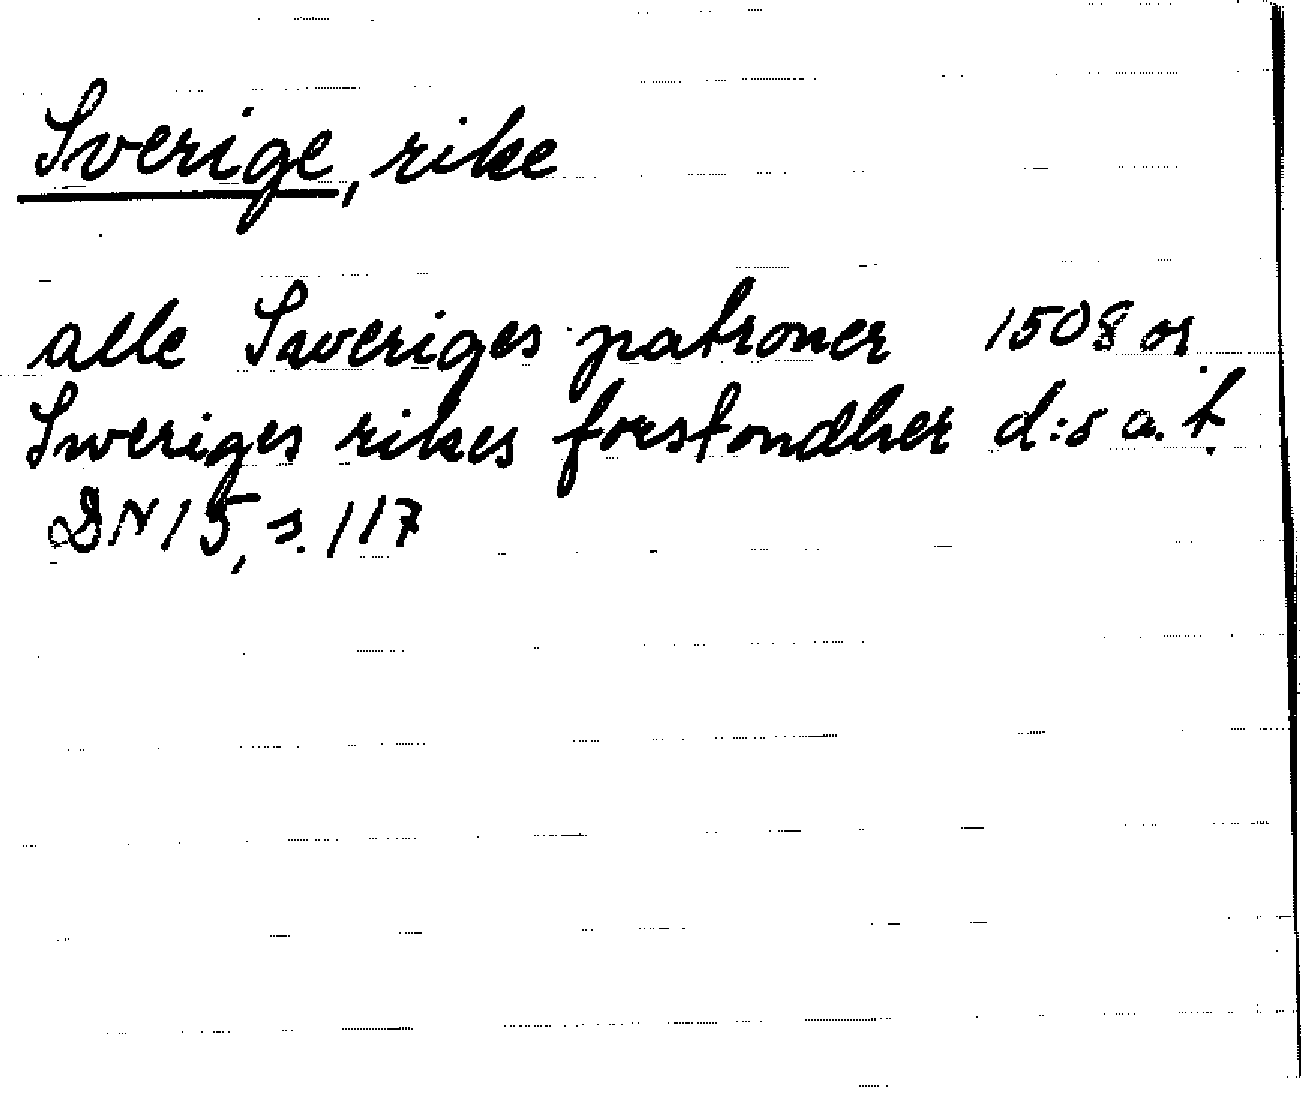 Sverige, rike
alle Sweriges patroner 1508 or
Sweriges rikes forstondher d:o a. t.
DN 15, s. 117